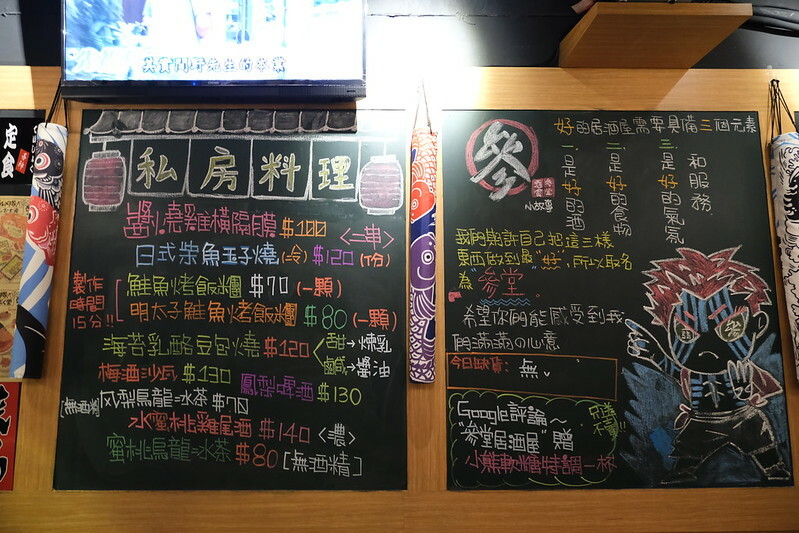 定食
私房料理
醬燒雞橫隔膜 $100 <二串>
日式柴魚玉子燒(冷) $120 (份)
製作時間15分!!
鮭魚烤飯糰 $70 (一顆)
明太子鮭魚烤飯糰 $80 (一顆)
海苔乳酪豆包燒 $120
甜→煉乳
鹹→醬油
梅酒沙瓦 $130
鳳梨啤酒 $130
[無酒精]
風梨烏龍冰茶 $70
水蜜桃雞尾酒 $140 <濃>
蜜桃烏龍冰茶 $80 [無酒精]
參
小故事
好的居酒屋需要具備三個元素
一.是好的酒
二.是好的食物
三.是好的氣氛
和服務
我們期許自己把這三樣
東西做到最"好",所以取名
為"參堂"
希望你們能感受到我
們滿滿的心意
今日缺貨: 無
Google評論~
"參堂居酒屋"贈
小熊軟糖特調一杯